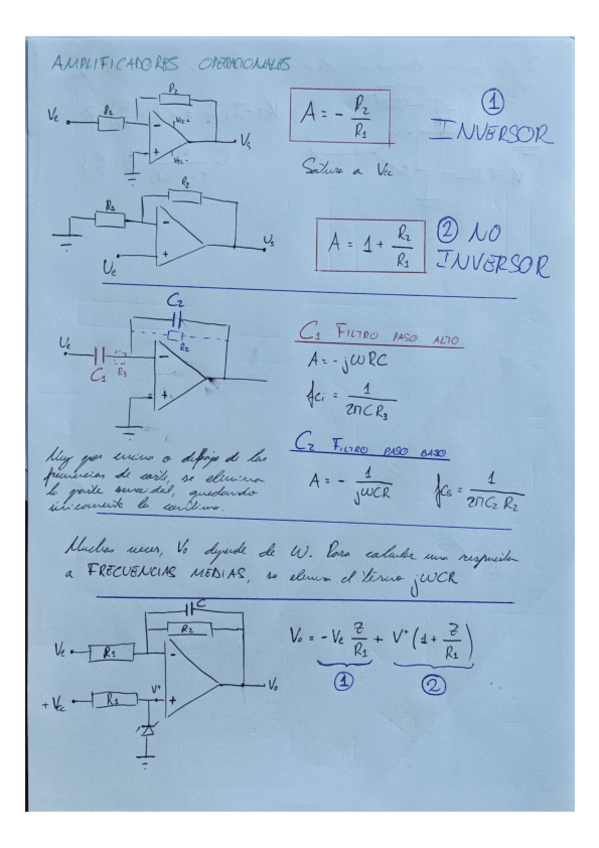 AMPLIFICADORES OPERACIONALES
R2
Ve R1 - Vcc+ + Vcc- Vs
A = - R2/R1
1
INVERSOR
Satura a Vcc
R2
R1 - + Us
Ue
A = 1 + R2/R1
2 NO
INVERSOR
C2
R2
Ue C1 R3 - +
C1 FILTRO PASO ALTO
A = - jWRC
fci = 1/2πCR3
C2 FILTRO PASO BAJO
A = - 1/jWCR fcs = 1/2πC2 R2
Muy por encima o debajo de las
frecuencias de corte, se elimina
la parte senoidal, quedando
únicamente la continua.
Muchas veces, Vo depende de W. Para calcular una respuesta
a FRECUENCIAS MEDIAS, se elimina el término jWCR
C
R2
Ve R1 -
+ Vcc R1 V+ + Vo
Vo = - Ve Z/R1 + V+ (1 + Z/R1)
1 2